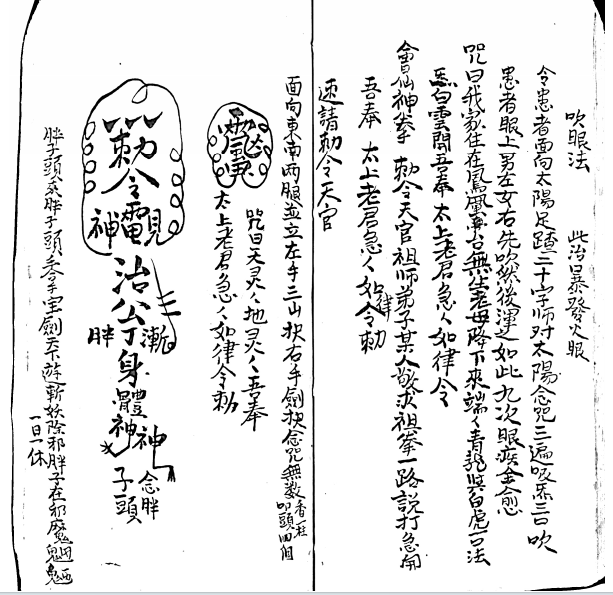 吹眼法　此治暴發火眼
令患者面向太陽足踏二十字师对太陽念咒三遍吸炁三口吹
患者眼上男左女右先吹然後運之如此九次眼疾全愈
咒曰我家住在鳳凰臺無生老母降下來端々青龍與白虎一口法
炁白雲開吾奉太上老君急々如律令
會仙神拳 勅令天官祖师弟子某人敬求祖拳一路說打急開
吾奉 太上老君急々如律令勅
速請勅令天官
面向東南两眼並立左手三山抉右手劍抉念咒無数香一柱叩頭四個
咒曰天灵々地灵々吾奉
太上老君急々如律令勅
勅令
神 觀
治公
胖 漸
身體
神 神
念胖子頭
胖子頭來胖子頭 手宝劍天下遊斬妖除邪胖子在邪魔
一日一休